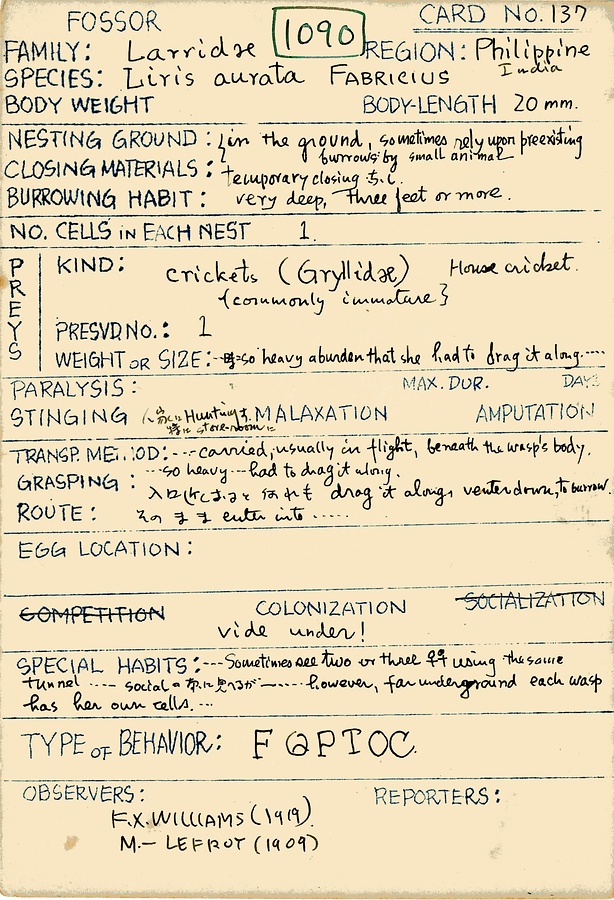 FOSSOR 1090 CARD NO. 137
FAMILY: Larridæ REGION: Philippine
India
SPECIES: Liris aurata FABRICIUS
BODY WEIGHT BODY-LENGTH 20 mm.
NESTING GROUND: {in the ground, sometimes rely upon preexisting
burrows by small animal
CLOSING MATERIALS: temporary closing
BURROWING HABIT: very deep, three feet or more.
NO. CELLS in EACH NEST 1.
PREYS
KIND: crickets (Gryllidæ) House cricket.
{commonly immature}
PRESVD NO.: 1
WEIGHT OR SIZE: so heavy a burden that she had to drag it along.....
PARALYSIS: MAX. DUR. DAYS
STINGING MALAXATION AMPUTATION
TRANSP. METHOD: ---carried, usually in flight, beneath the wasp's body.
GRASPING: ---so heavy---had to drag it along.
drag it along, venter down, to burrow
ROUTE: そのまま enter into .....
EGG LOCATION:
COMPETITION COLONIZATION SOCIALIZATION
vide under!
SPECIAL HABITS: ---Sometimes see two or three ♀♀ using the same
tunnel ---- social ------ however, far underground each wasp
has her own cells. ...
TYPE OF BEHAVIOR: F@PTOC.
OBSERVERS: REPORTERS:
F.X. WILLIAMS (1919).
M.- LEFROY (1909)